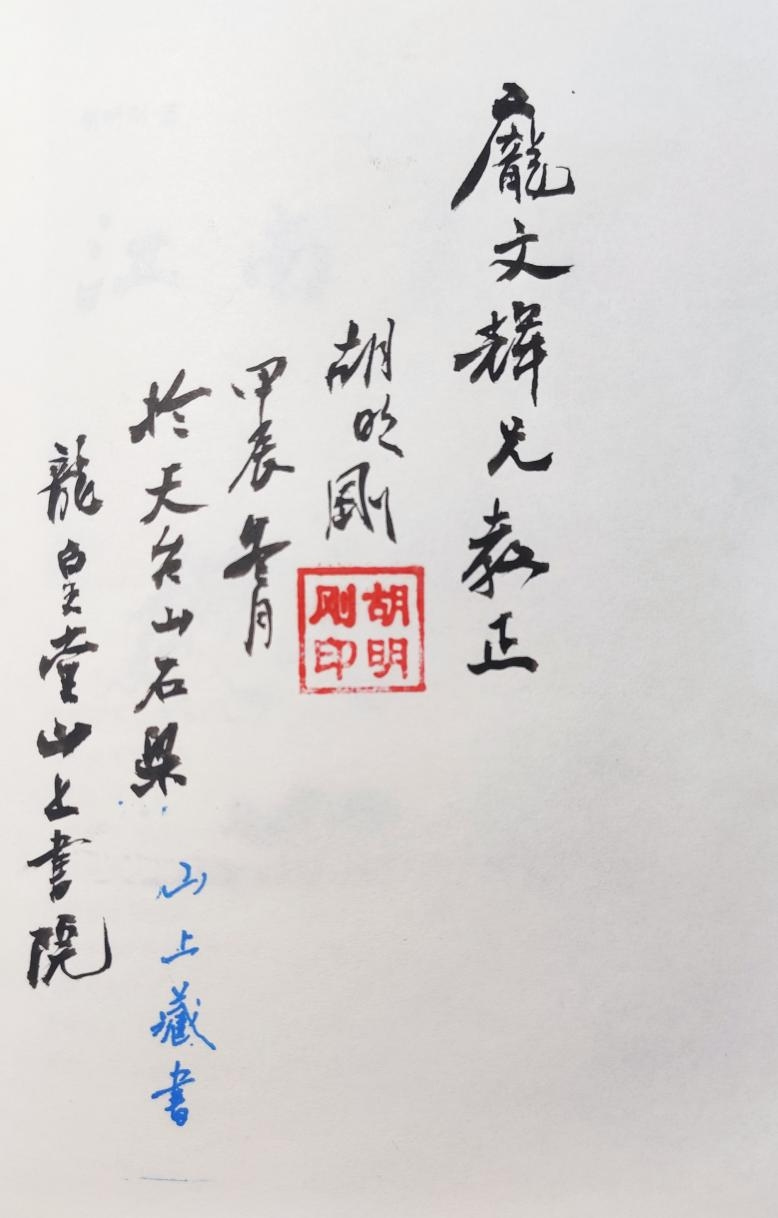 龐文輝兄教正
胡明剛
胡明
剛印
甲辰冬月
於天台山石梁
龍皇堂山上書院
山上藏書